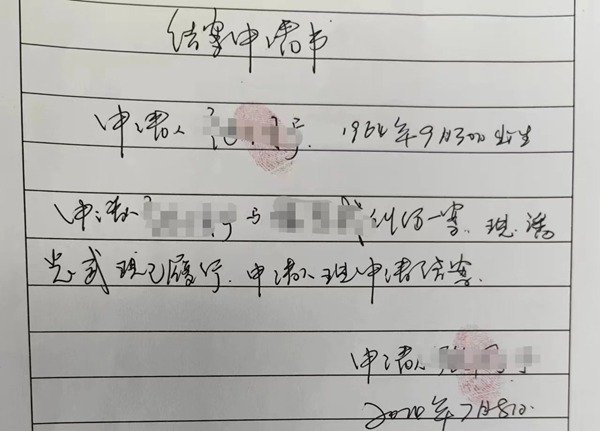 结案申请书
申请人 1964年9月30日出生
申请人 与 纠纷一案.现
现已履行.申请人现申请结案.
申请人
2020年7月8日